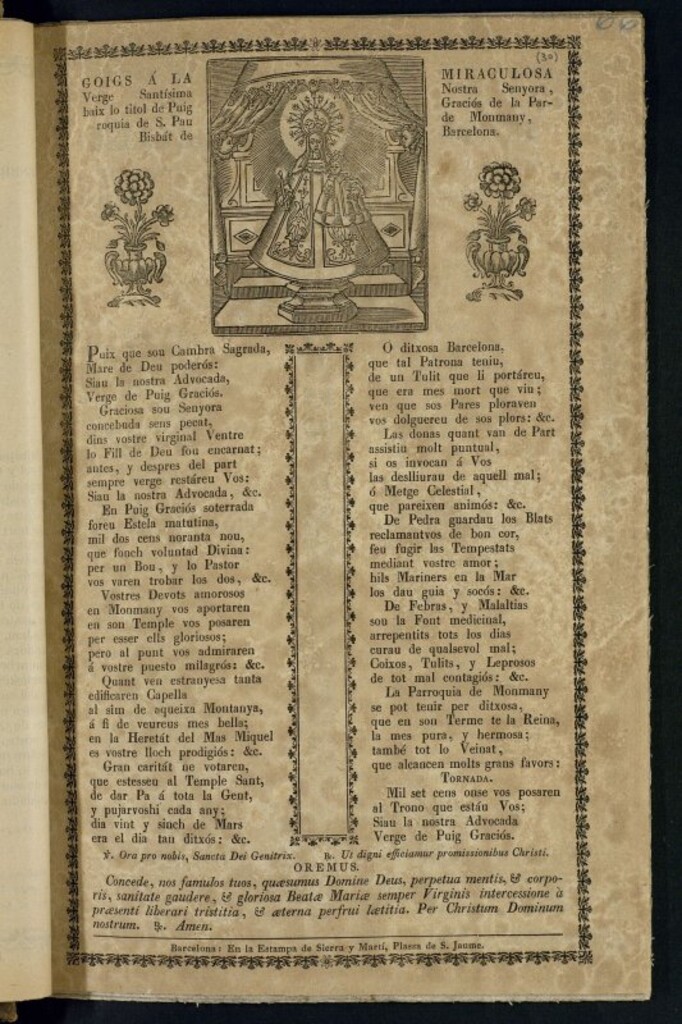 66
(30)
GOIGS Á LA
Verge Santísima
baix lo titol de Puig
roquia de S. Pau
Bisbát de
MIRACULOSA
Nostra Senyora,
Graciós de la Par-
de Monmany,
Barcelona.
Puix que sou Cambra Sagrada,
Mare de Deu poderós:
Siau la nostra Advocada,
Verge de Puig Graciós.
Graciosa sou Senyora
concebuda sens pecat,
dins vostre virginal Ventre
lo Fill de Deu fou encarnat;
antes, y despres del part
sempre verge restáreu Vos:
Siau la nostra Advocada, &c.
En Puig Graciós soterrada
foreu Estela matutina,
mil dos cens noranta nou,
que fonch voluntad Divina:
per un Bou, y lo Pastor
vos varen trobar los dos, &c.
Vostres Devots amorosos
en Monmany vos aportaren
en son Temple vos posaren
per esser ells gloriosos;
pero al punt vos admiraren
á vostre puesto milagrós: &c.
Quant ven estranyesa tanta
edificaren Capella
al sim de aqueixa Montanya,
á fi de veureus mes bella;
en la Heretát del Mas Miquel
es vostre lloch prodigiós: &c.
Gran caritát ne votaren,
que estesseu al Temple Sant,
de dar Pa á tota la Gent,
y pujarvoshi cada any;
dia vint y sinch de Mars
era el dia tan ditxós: &c.
O ditxosa Barcelona,
que tal Patrona teniu,
de un Tulit que li portáreu,
que era mes mort que viu;
ven que sos Pares ploraven
vos dolguereu de sos plors: &c.
Las donas quant van de Part
assistiu molt puntual,
si os invocan á Vos
las deslliurau de aquell mal;
ó Metge Celestial,
que pareixen animós: &c.
De Pedra guardau los Blats
reclamantvos de bon cor,
feu fugir las Tempestats
mediant vostre amor;
hils Mariners en la Mar
los dau guia y socós: &c.
De Febras, y Malaltias
sou la Font medicinal,
arrepentits tots los dias
curau de qualsevol mal;
Coixos, Tulits, y Leprosos
de tot mal contagiós: &c.
La Parroquia de Monmany
se pot tenir per ditxosa,
que en son Terme te la Reina,
la mes pura, y hermosa;
també tot lo Veinat,
que alcancen molts grans favors:
TORNADA.
Mil set cens onse vos posaren
al Trono que estáu Vos;
Siau la nostra Advocada
Verge de Puig Graciós.
℣. Ora pro nobis, Sancta Dei Genitrix. ℟. Ut digni efficiamur promissionibus Christi.
OREMUS.
Concede, nos famulos tuos, quæsumus Domine Deus, perpetua mentis, & corpo-
ris, sanitate gaudere, & gloriosa Beatæ Mariæ semper Virginis intercessione à
præsenti liberari tristitia, & æterna perfrui lætitia. Per Christum Dominum
nostrum. ℟. Amen.
Barcelona: En la Estampa de Sierra y Martí, Plassa de S. Jaume.